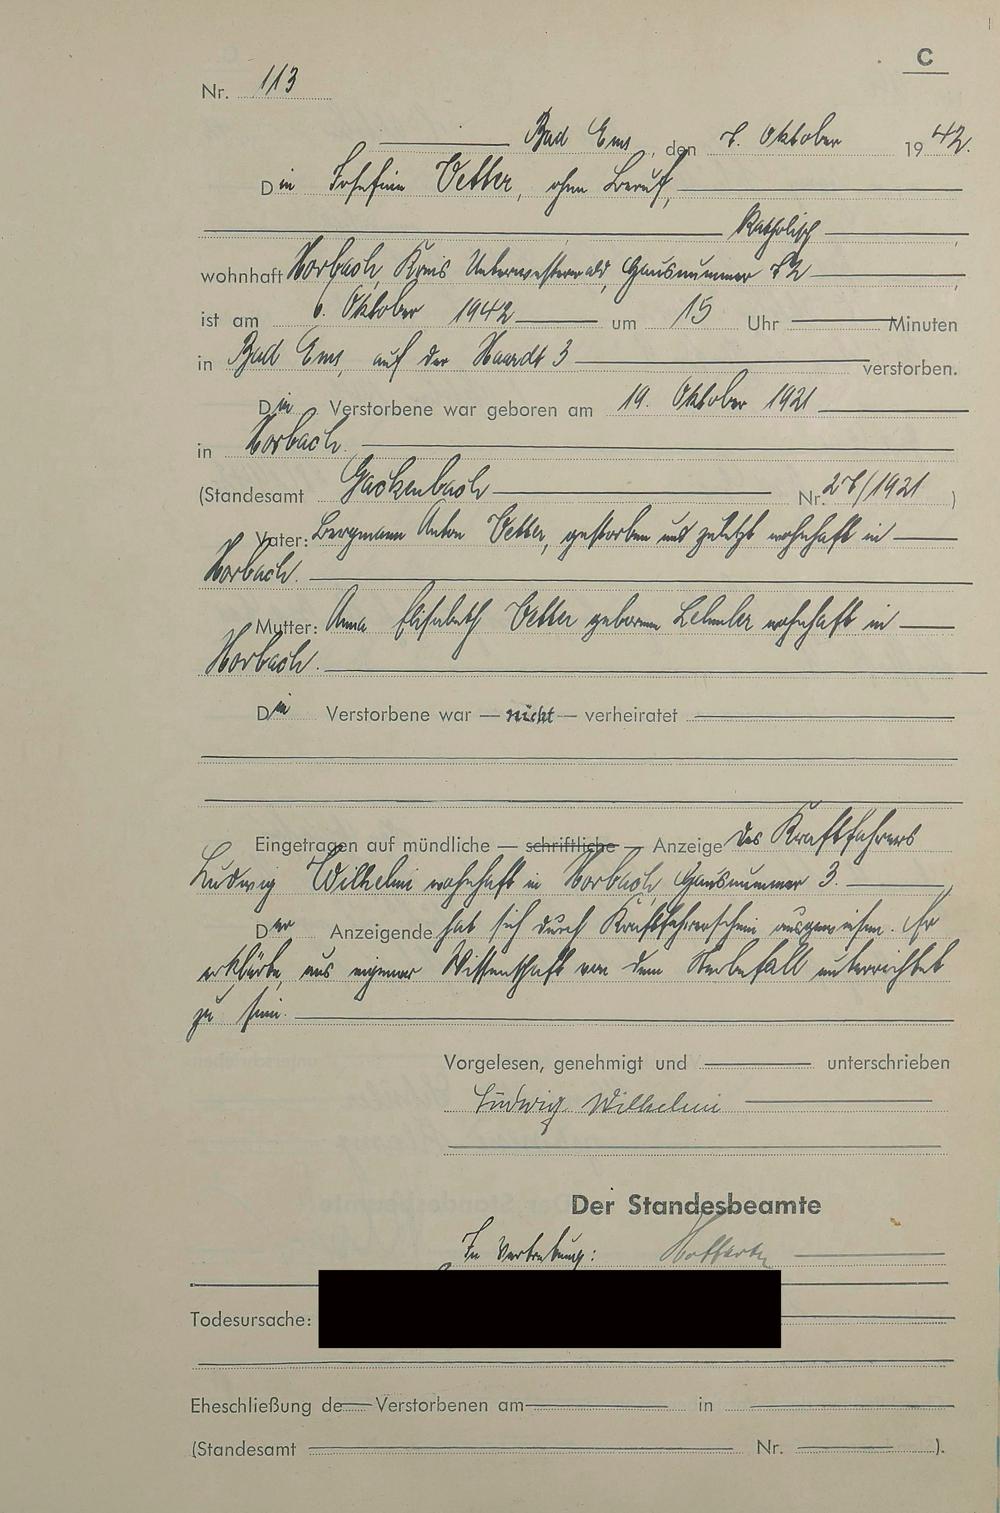 C
Nr. 113
Bad Ems, den 7. Oktober 1942.
Die Josefine Vetter, ohne Beruf,
Katholisch
wohnhaft Horbach, Kreis Unterwesterwald, Hausnummer 72
ist am 6. Oktober 1942 um 15 Uhr Minuten
in Bad Ems, auf der Haardt 3 verstorben.
Die Verstorbene war geboren am 19. Oktober 1921
in Horbach.
(Standesamt Gackenbach Nr. 27/1921)
Vater: Bergmann Anton Vetter, gestorben und zuletzt wohnhaft in
Horbach.
Mutter: Anna Elisabeth Vetter geborene wohnhaft in
Horbach.
Die Verstorbene war — nicht — verheiratet
Eingetragen auf mündliche — schriftliche — Anzeige des Kraftfahrers
Ludwig Wilhelmi wohnhaft in Horbach, Hausnummer 3.
Der Anzeigende hat sich durch Kraftfahrerschein ausgewiesen. Er
erklärte, aus eigener Wissenschaft von dem Sterbefall unterrichtet
zu sein.
Vorgelesen, genehmigt und unterschrieben
Ludwig Wilhelmi
Der Standesbeamte
In Vertretung:
Todesursache:
Eheschließung de Verstorbenen am in
(Standesamt Nr. ).